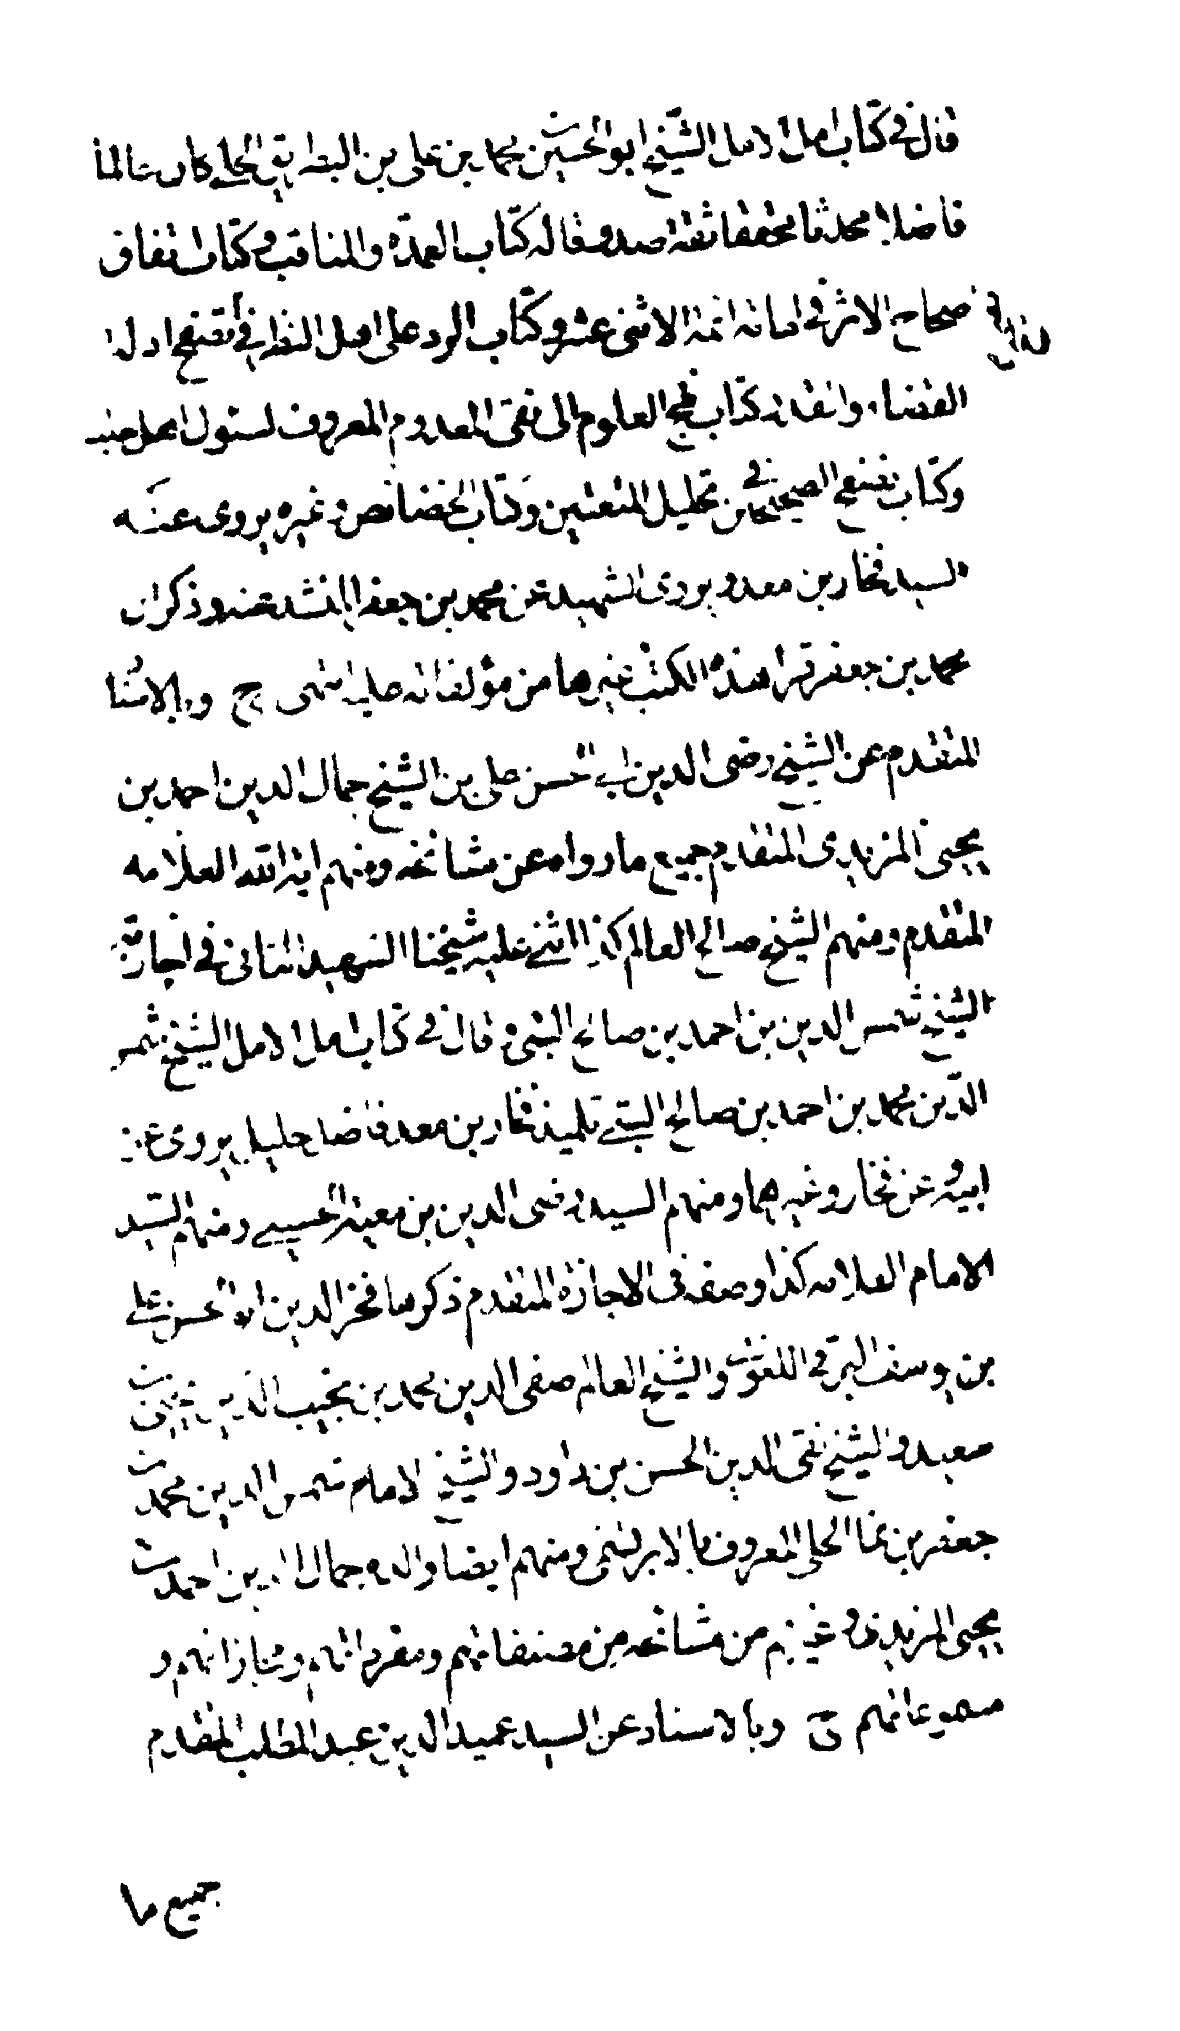 قال في كتاب امل الامل الشيخ ابو الحسين يحيى بن علي بن البطريق الحلي كان عالما
فاضلا محدثا محققا ثقة صدوقا له كتاب العمدة والمناقب وكتاب اتفاق
صحاح الاثر في امامة ائمة الاثنى عشر وكتاب الرد على اهل النظر في تصفح ادلة
القضاء والقدر وكتاب نهج العلوم الى نفي المعدوم المعروف لسئول اهل حلب
وكتاب تصفح الصحيحين في تحليل المتعتين وكتاب الخصائص وغيره يروى عنه
السيد فخار بن معد و يروى الشهيد عن محمد بن جعفر المشهدى عنه وذكر ان
محمد بن جعفر قرأ هذه الكتب وغيرها من مؤلفاته عليه انتهى ح وبالاسنا
المتقدم عن الشيخ رضى الدين ابى الحسن على بن الشيخ جمال الدين احمد بن
يحيى المزيدى المتقدم جميع ما رواه عن مشائخه ومنهم اية الله العلامه
المتقدم ومنهم الشيخ صالح العالم كذا اثنى عليه شيخنا الشهيد الثانى في اجازته
الشيخ شمس الدين بن احمد بن صالح البسى وقال في كتاب امل الامل الشيخ شمس
الدين محمد بن احمد بن صالح السيبى تلميذ فخار بن معد فاضل جليل يروى عن
ابيه وعن فخار وغيرهما ومنهم السيد رضى الدين بن معية الحسينى ومنهم السيد
الامام العلامه كذا وصفه في الاجازة المتقدم ذكرها فخر الدين ابو الحسن على
بن يوسف البوقى اللغوى والشيخ العالم صفى الدين محمد بن نجيب الدين يحيى بن
سعيد والشيخ تقى الدين الحسن بن داود والشيخ الامام شمس الدين محمد بن
جعفر بن نما الحلى المعروف بالابريسمى ومنهم ايضا والده جمال الدين احمد بن
يحيى المزيدى وغيرهم من مشائخه من مصنفاتهم ومقرواتهم ومجازاتهم و
مسموعاتهم ح وبالاسناد عن السيد عميد الدين عبد المطلب المتقدم
جميع ما